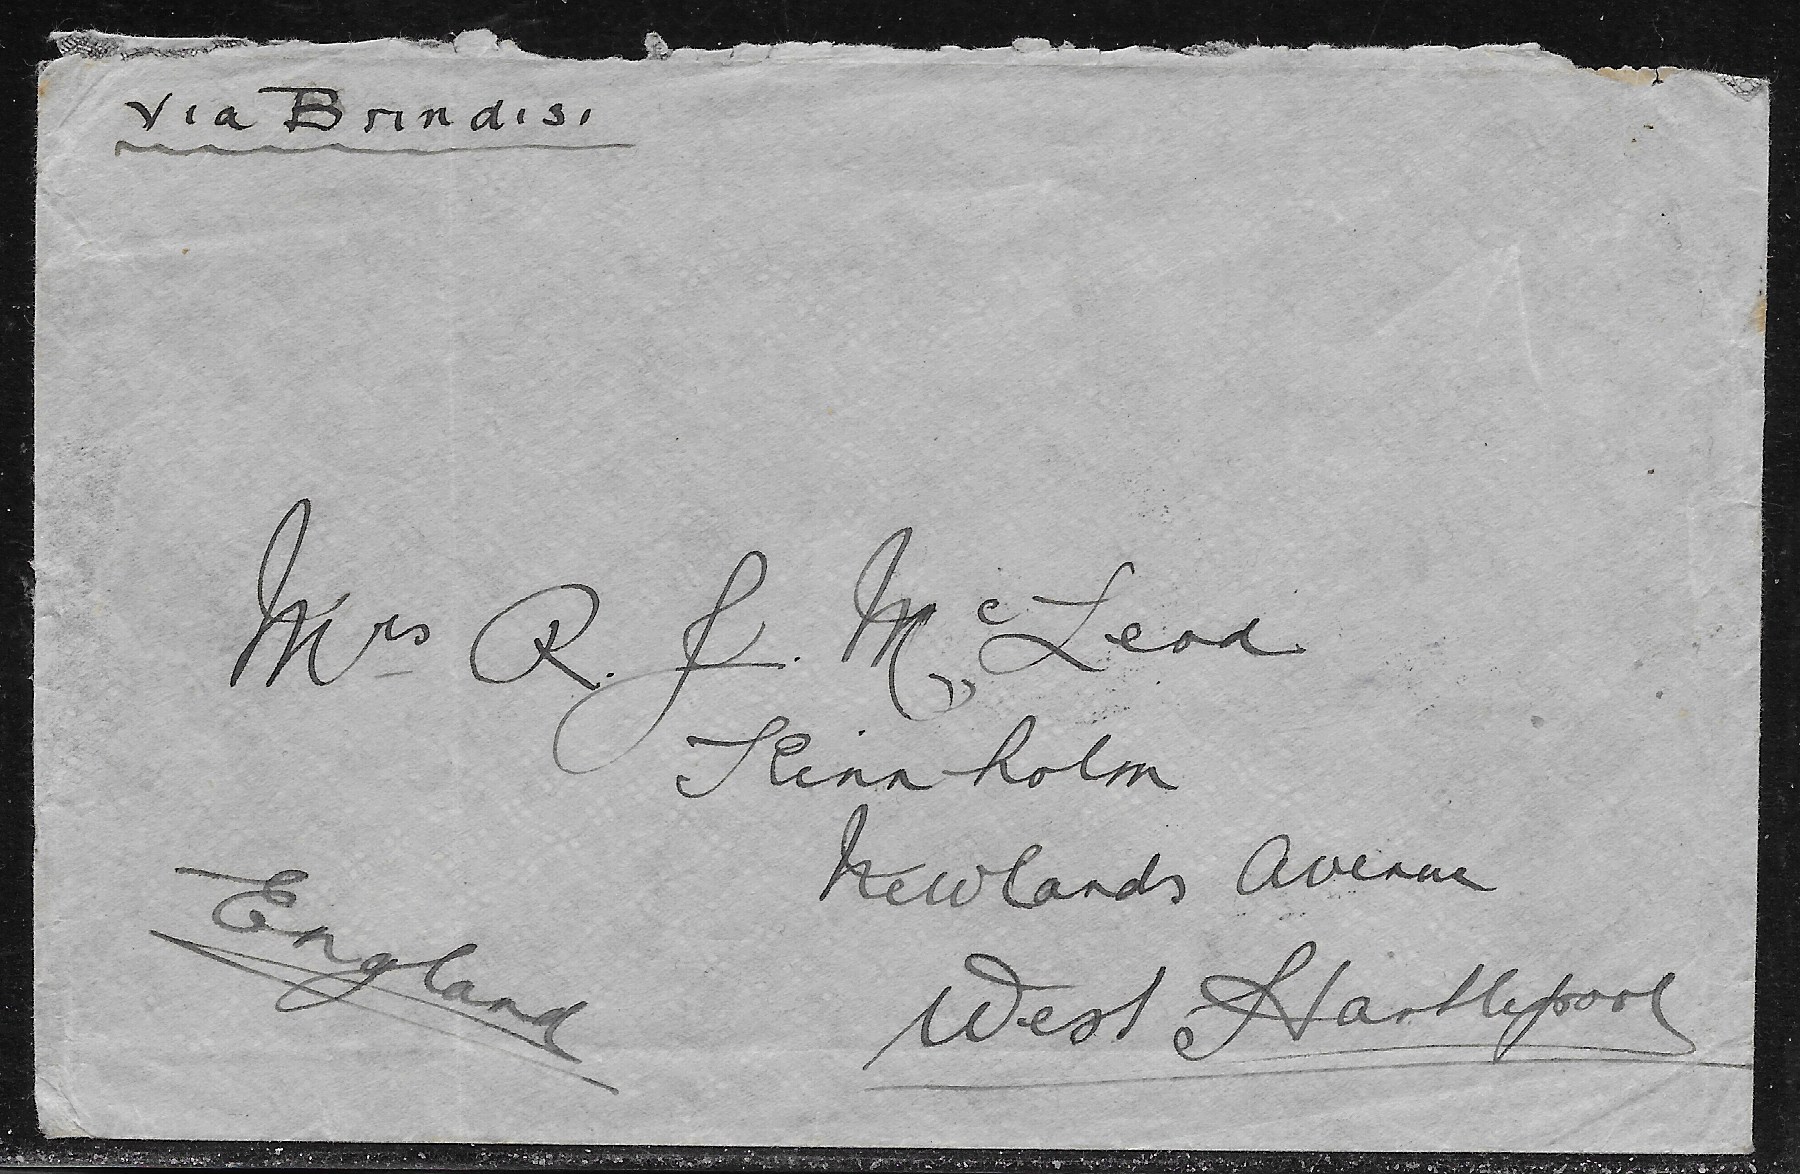 via Brindisi
Mrs R. J. McLeod
Kinnholm
Newlands Avenue
West Hartlepool
England